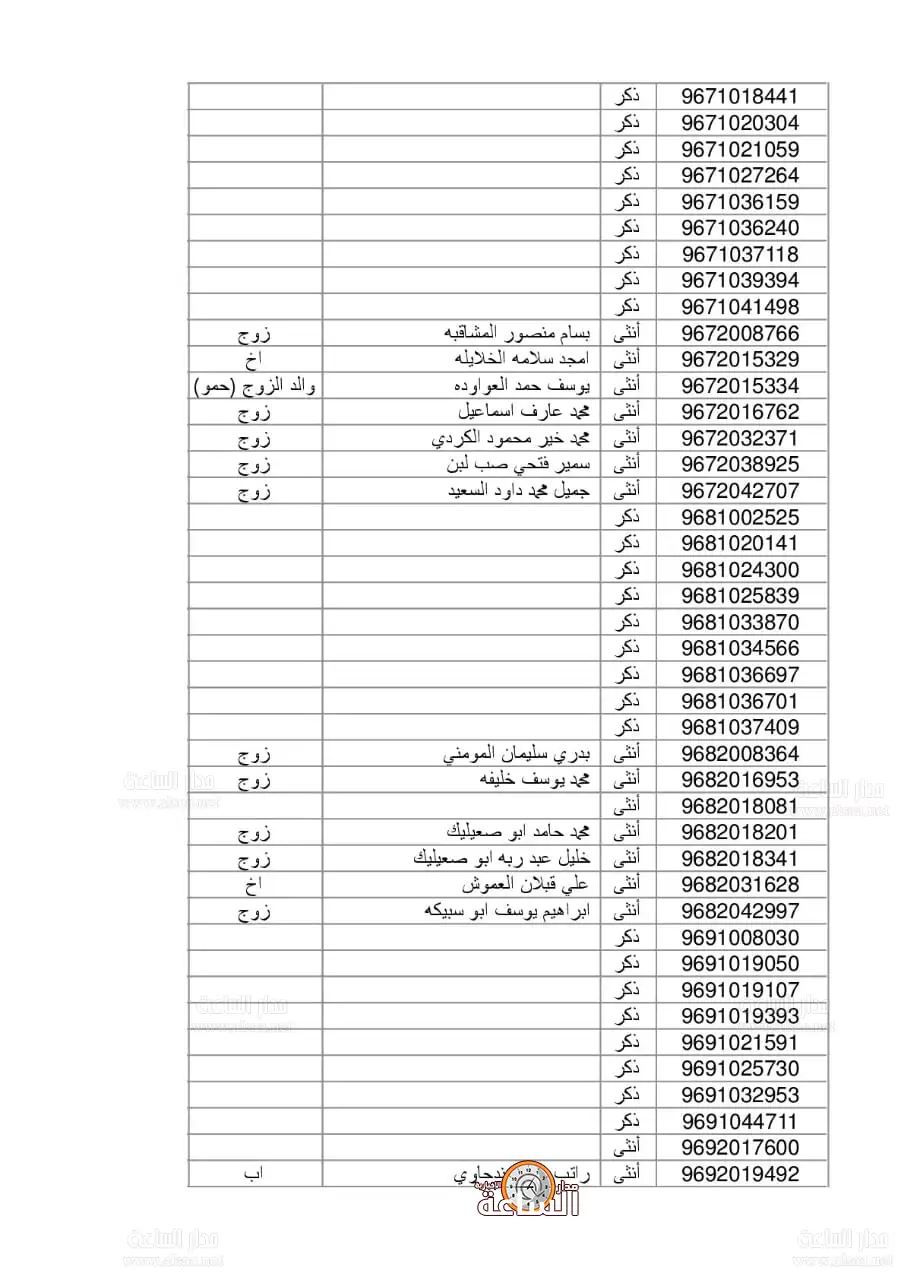 9671018441 ذكر
9671020304 ذكر
9671021059 ذكر
9671027264 ذكر
9671036159 ذكر
9671036240 ذكر
9671037118 ذكر
9671039394 ذكر
9671041498 ذكر
9672008766 أنثى بسام منصور المشاقبه زوج
9672015329 أنثى امجد سلامه الخلايله اخ
9672015334 أنثى يوسف حمد العواوده والد الزوج (حمو)
9672016762 أنثى محمد عارف اسماعيل زوج
9672032371 أنثى محمد خير محمود الكردي زوج
9672038925 أنثى سمير فتحي صب لبن زوج
9672042707 أنثى جميل محمد داود السعيد زوج
9681002525 ذكر
9681020141 ذكر
9681024300 ذكر
9681025839 ذكر
9681033870 ذكر
9681034566 ذكر
9681036697 ذكر
9681036701 ذكر
9681037409 ذكر
9682008364 أنثى بدري سليمان المومني زوج
9682016953 أنثى محمد يوسف خليفه زوج
9682018081 أنثى
9682018201 أنثى محمد حامد ابو صعيليك زوج
9682018341 أنثى خليل عبد ربه ابو صعيليك زوج
9682031628 أنثى علي قبلان العموش اخ
9682042997 أنثى ابراهيم يوسف ابو سبيكه زوج
9691008030 ذكر
9691019050 ذكر
9691019107 ذكر
9691019393 ذكر
9691021591 ذكر
9691025730 ذكر
9691032953 ذكر
9691044711 ذكر
9692017600 أنثى
9692019492 أنثى راتب اب
مدار الساعة الإخبارية
مدار الساعة
www.alsaa.net
مدار الساعة
www.alsaa.net
مدار الساعة
www.alsaa.net
مدار الساعة
www.alsaa.net
مدار الساعة
www.alsaa.net
مدار الساعة
www.alsaa.net